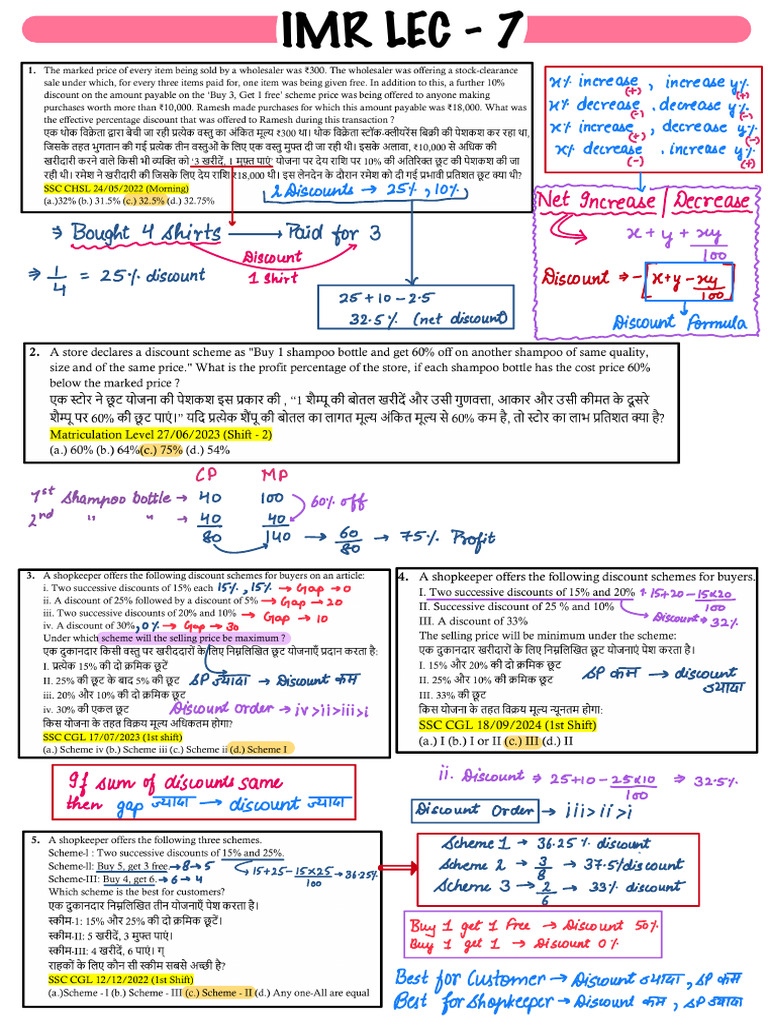 IMR LEC - 7
1. The marked price of every item being sold by a wholesaler was ₹300. The wholesaler was offering a stock-clearance
sale under which, for every three items paid for, one item was being given free. In addition to this, a further 10%
discount on the amount payable on the 'Buy 3, Get 1 free' scheme price was being offered to anyone making
purchases worth more than ₹10,000. Ramesh made purchases for which this amount payable was ₹18,000. What was
the effective percentage discount that was offered to Ramesh during this transaction ?
एक थोक विक्रेता द्वारा बेची जा रही प्रत्येक वस्तु का अंकित मूल्य ₹300 था। थोक विक्रेता स्टॉक-क्लीयरेंस बिक्री की पेशकश कर रहा था,
जिसके तहत भुगतान की गई प्रत्येक तीन वस्तुओं के लिए एक वस्तु मुफ्त दी जा रही थी। इसके अलावा, ₹10,000 से अधिक की
खरीदारी करने वाले किसी भी व्यक्ति को '3 खरीदें, 1 मुफ़्त पाएं' योजना पर देय राशि पर 10% की अतिरिक्त छूट की पेशकश की जा
रही थी। रमेश ने खरीदारी की जिसके लिए देय राशि ₹18,000 थी। इस लेनदेन के दौरान रमेश को दी गई प्रभावी प्रतिशत छूट क्या थी?
SSC CHSL 24/05/2022 (Morning)
(a.)32% (b.) 31.5% (c.) 32.5% (d.) 32.75%
2 Discounts → 25%, 10%
x% increase, increase y%
(+) (+)
x% decrease, decrease y%
(-) (-)
x% increase, decrease y%
(+) (-)
x% decrease, increase y%
(-) (+)
Net Increase / Decrease
x + y + xy/100
Discount → x+y - xy/100
Discount Formula
⇒ Bought 4 shirts → Paid for 3
Discount
1 Shirt
⇒ 1/4 = 25% discount
25 + 10 - 2.5
32.5% (net discount)
2. A store declares a discount scheme as "Buy 1 shampoo bottle and get 60% off on another shampoo of same quality,
size and of the same price." What is the profit percentage of the store, if each shampoo bottle has the cost price 60%
below the marked price ?
एक स्टोर ने छूट योजना की पेशकश इस प्रकार की , "1 शैम्पू की बोतल खरीदें और उसी गुणवत्ता, आकार और उसी कीमत के दूसरे
शैम्पू पर 60% की छूट पाएं।" यदि प्रत्येक शैंपू की बोतल का लागत मूल्य अंकित मूल्य से 60% कम है, तो स्टोर का लाभ प्रतिशत क्या है?
Matriculation Level 27/06/2023 (Shift - 2)
(a.) 60% (b.) 64%(c.) 75% (d.) 54%
CP MP
1st Shampoo bottle → 40 100
60% off
2nd " " → 40 40
80 140 → 60/80 → 75% Profit
3. A shopkeeper offers the following discount schemes for buyers on an article:
i. Two successive discounts of 15% each 15%, 15% → Gap → 0
ii. A discount of 25% followed by a discount of 5% → Gap → 20
iii. Two successive discounts of 20% and 10% → Gap → 10
iv. A discount of 30%, 0% → Gap → 30
Under which scheme will the selling price be maximum ?
एक दुकानदार किसी वस्तु पर खरीददारों के लिए निम्नलिखित छूट योजनाएँ प्रदान करता है:
I. प्रत्येक 15% की दो क्रमिक छूटें
II. 25% की छूट के बाद 5% की छूट SP ज्यादा → Discount कम
iii. 20% और 10% की दो क्रमिक छूट
iv. 30% की एकल छूट Discount order → iv>ii>iii>i
किस योजना के तहत विक्रय मूल्य अधिकतम होगा?
SSC CGL 17/07/2023 (1st shift)
(a.) Scheme iv (b.) Scheme iii (c.) Scheme ii (d.) Scheme I
If sum of discounts same
then gap ज्यादा → discount ज्यादा
4. A shopkeeper offers the following discount schemes for buyers.
I. Two successive discounts of 15% and 20% → 15+20 - 15x20/100
II. Successive discount of 25 % and 10% Discount → 32%
III. A discount of 33%
The selling price will be minimum under the scheme:
एक दुकानदार खरीदारों के लिए निम्नलिखित छूट योजनाएं पेश करता है।
I. 15% और 20% की दो क्रमिक छूट
II. 25% और 10% की क्रमिक छूट SP कम → discount ज्यादा
III. 33% की छूट
किस योजना के तहत विक्रय मूल्य न्यूनतम होगा:
SSC CGL 18/09/2024 (1st Shift)
(a.) I (b.) I or II (c.) III (d.) II
ii. Discount ⇒ 25+10 - 25x10/100 ⇒ 32.5%
Discount Order → iii>ii>i
5. A shopkeeper offers the following three schemes.
Scheme-l : Two successive discounts of 15% and 25%.
Scheme-ll: Buy 5, get 3 free. → 8 → 5
→ 15+25 - 15x25/100 → 36.25%
Scheme-III: Buy 4, get 6. → 6 → 4
Which scheme is the best for customers?
एक दुकानदार निम्नलिखित तीन योजनाएँ पेश करता है।
स्कीम-1: 15% और 25% की दो क्रमिक छूटें।
स्कीम-II: 5 खरीदें, 3 मुफ्त पाएं।
स्कीम-III: 4 खरीदें, 6 पाएं। ग्
राहकों के लिए कौन सी स्कीम सबसे अच्छी है?
SSC CGL 12/12/2022 (1st Shift)
(a.)Scheme - l (b.) Scheme - III (c.) Scheme - II (d.) Any one-All are equal
Scheme 1 → 36.25% discount
Scheme 2 → 3/8 → 37.5% discount
Scheme 3 → 2/6 → 33% discount
Buy 1 get 1 free → Discount 50%
Buy 1 get 1 → Discount 0%
Best for Customer → Discount ज्यादा, SP कम
Best for Shopkeeper → Discount कम, SP ज्यादा